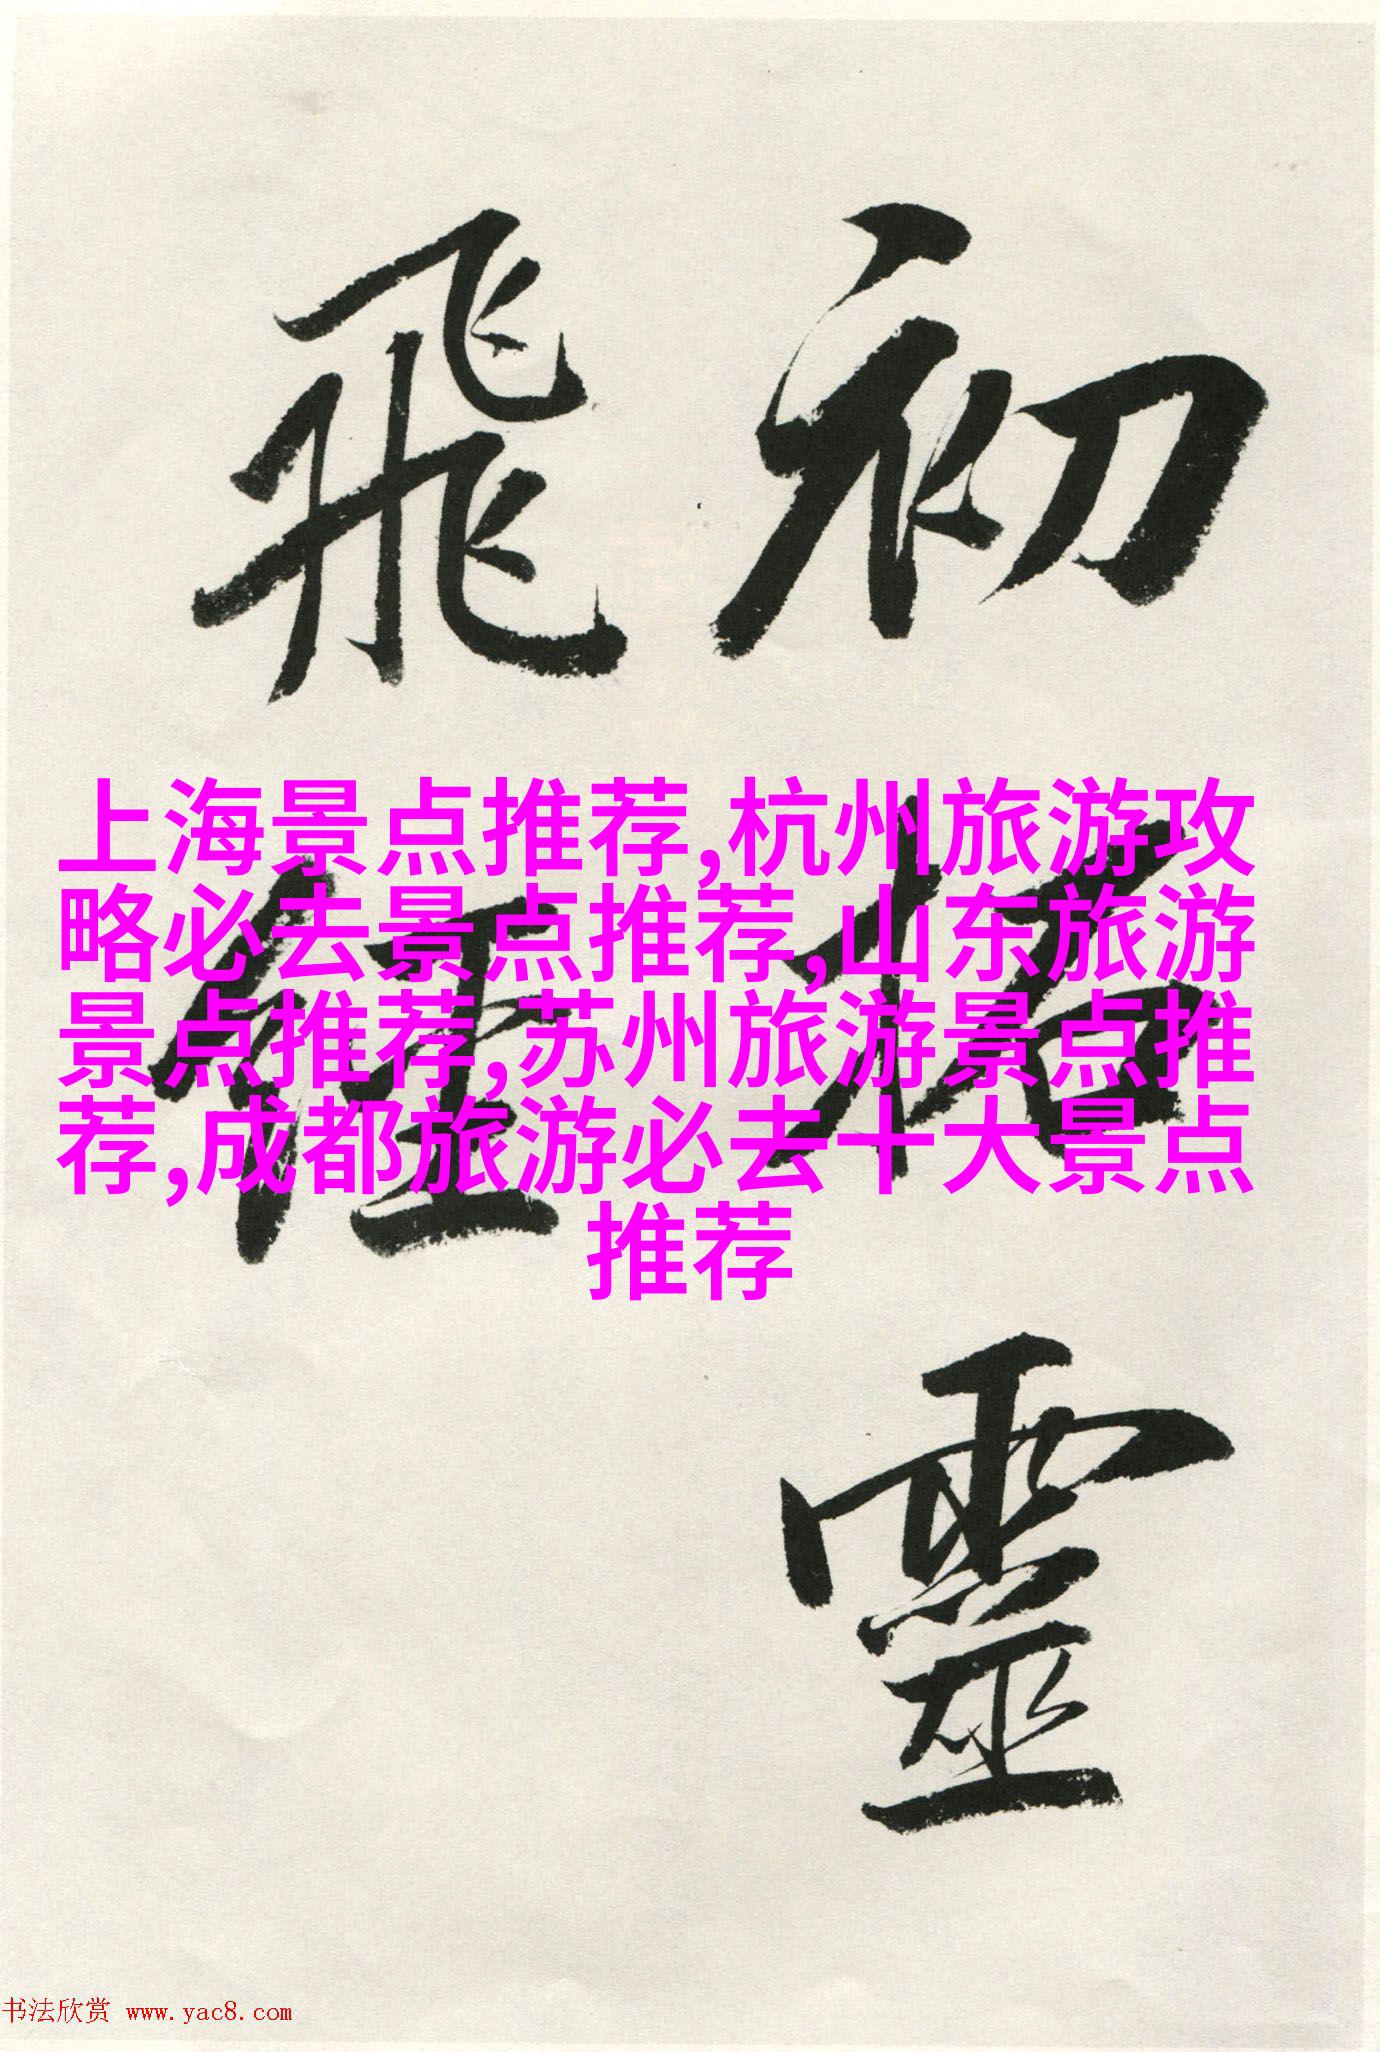 初拓靈
飛經
上海景点推荐,杭州旅游攻
略必去景点推荐,山东旅游
景点推荐,苏州旅游景点推
荐,成都旅游必去十大景点
推荐
书法欣赏 www.yac8.com